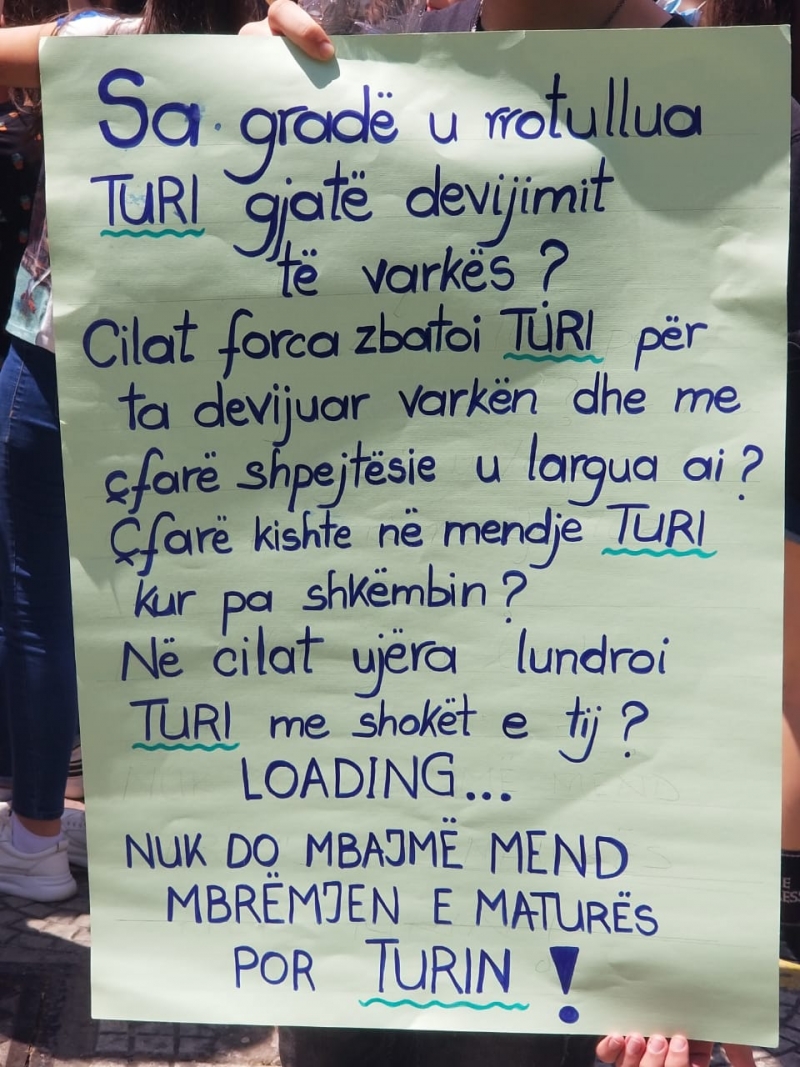 Sa gradë u rrotullua
TURI gjatë devijimit
të varkës?
Cilat forca zbatoi TURI për
ta devijuar varkën dhe me
çfarë shpejtësie u largua ai?
Çfarë kishte në mendje TURI
kur pa shkëmbin?
Në cilat ujëra lundroi
TURI me shokët e tij?
LOADING...
NUK DO MBAJMË MEND
MBRËMJEN E MATURËS
POR TURIN!